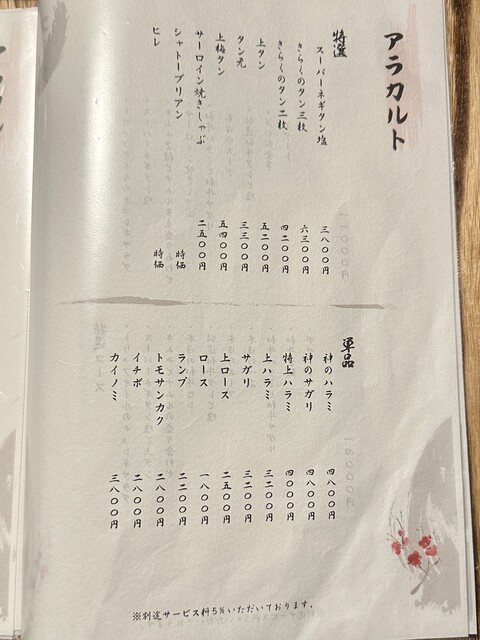 アラカルト
特選
スーパーネギタン塩 三八〇〇円
きらくのタン三枚 六三〇〇円
きらくのタン二枚 四二〇〇円
上タン 五二〇〇円
タン元 三三〇〇円
上極タン 五四〇〇円
サーロイン焼きしゃぶ 二五〇〇円
シャトーブリアン 時価
ヒレ 時価
単品
神のハラミ 四八〇〇円
神のサガリ 四八〇〇円
特上ハラミ 四〇〇〇円
上ハラミ 三二〇〇円
サガリ 三二〇〇円
上ロース 二五〇〇円
ロース 一八〇〇円
ランプ 二二〇〇円
トモサンカク 二八〇〇円
イチボ 二八〇〇円
カイノミ 三八〇〇円
※別途サービス料5%いただいております。